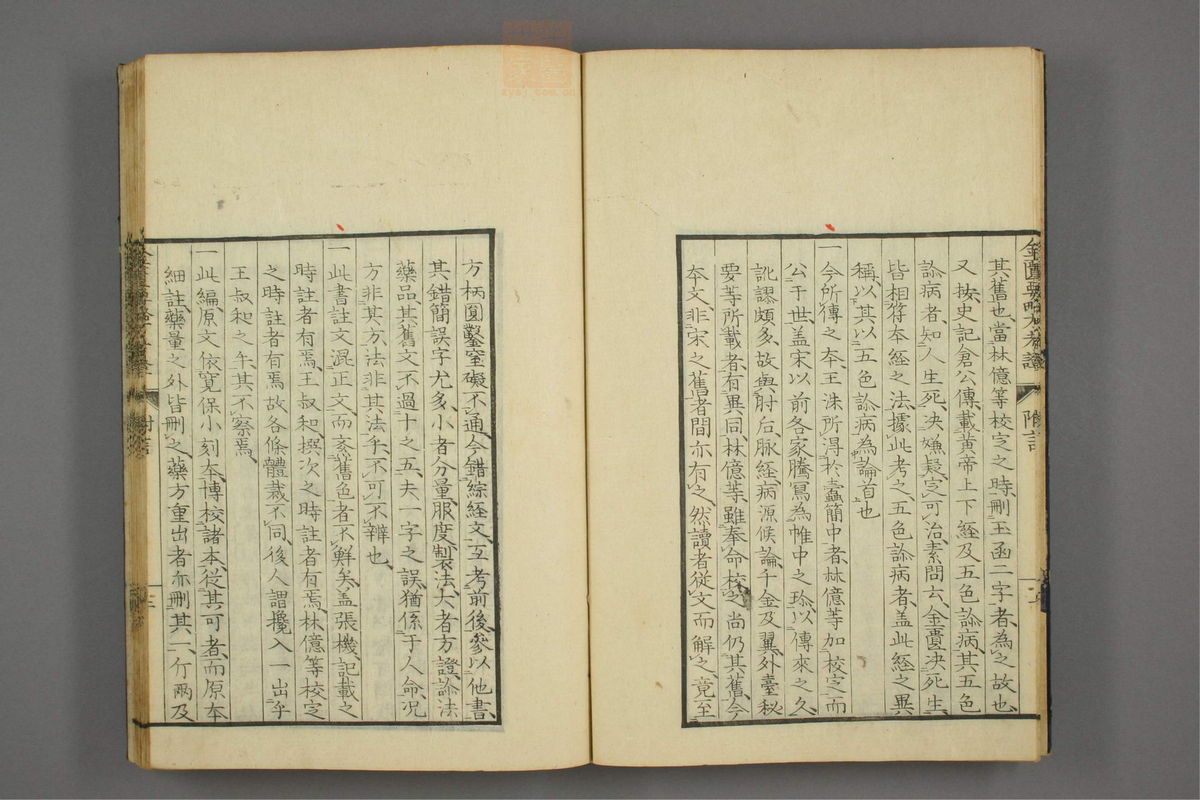 其舊也當林億等校定之時刪玉函二字者為之故也
又按史記倉公傳載黃帝上下經及五色診病其五色
診病者知人生死決嫌疑定可治素問云金匱決死生
皆相符本經之法據此考之五色診病者盖此經之異
稱以其以五色診病為論首也
一今所傳之本王洙所得於蠹簡中者林億等加校定而
公于世盖宋以前各家騰寫為帷中之珍以傳來之久
訛謬頗多故與肘后脉經病源候論千金及翼外臺秘
要等所載者有異同林億等雖奉命校之尚仍其舊今
本文非宋之舊者間亦有之然讀者從文而解之竟至
附言
方柄圓鑿窒礙不通今錯綜經文互考前後參以他書
其錯簡誤字尤多小者分量服度製法大者方證診法
藥品其舊文不過十之五夫一字之誤猶係于人命况
方非其方法非其法乎不可不辨也
一此書註文混正文而紊舊色者不鮮矣盖張機記載之
時註者有焉王叔和撰次之時註者有焉林億等校定
之時註者有焉故各條體裁不同後人謂攙入一出乎
王叔和之手其不察焉
一此編原文依寬保小刻本博校諸本從其可者而原本
細註藥量之外皆刪之藥方重出者亦刪其一斤兩及
附言